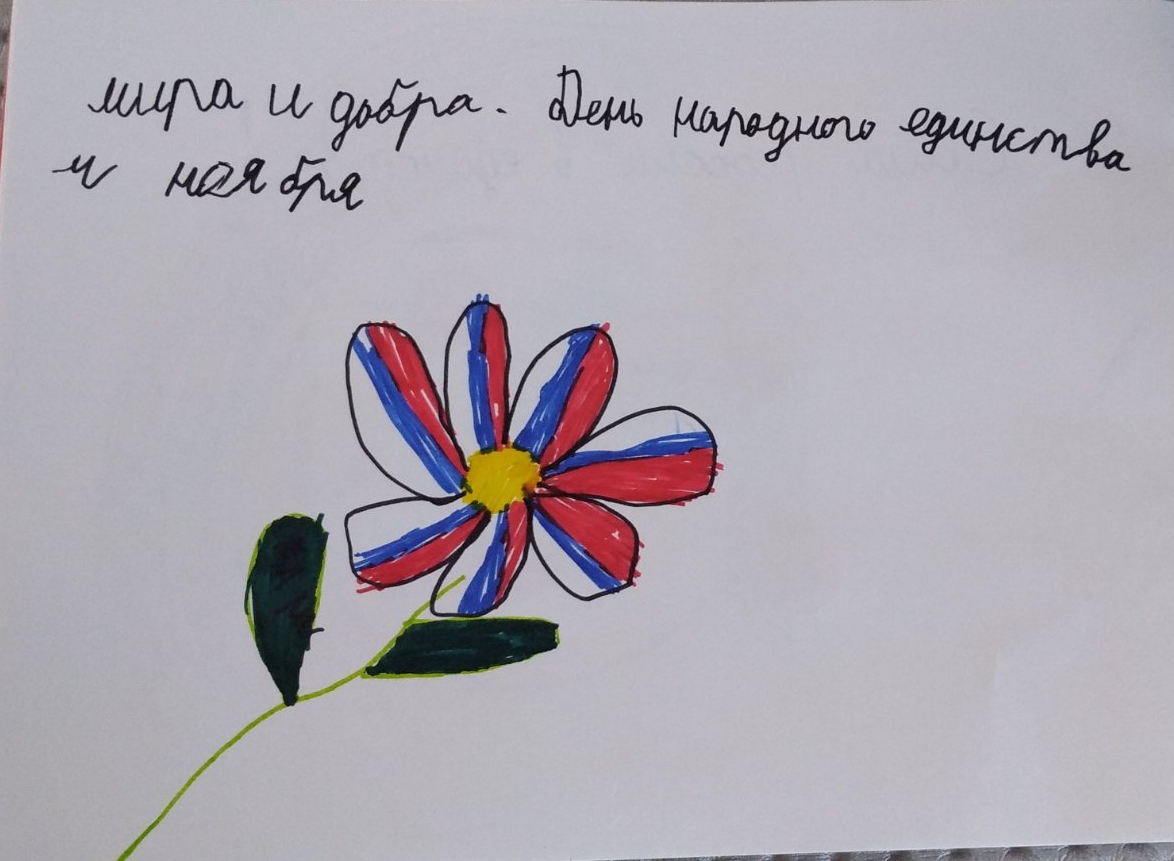 мира и добра. День народного единства
4 ноября